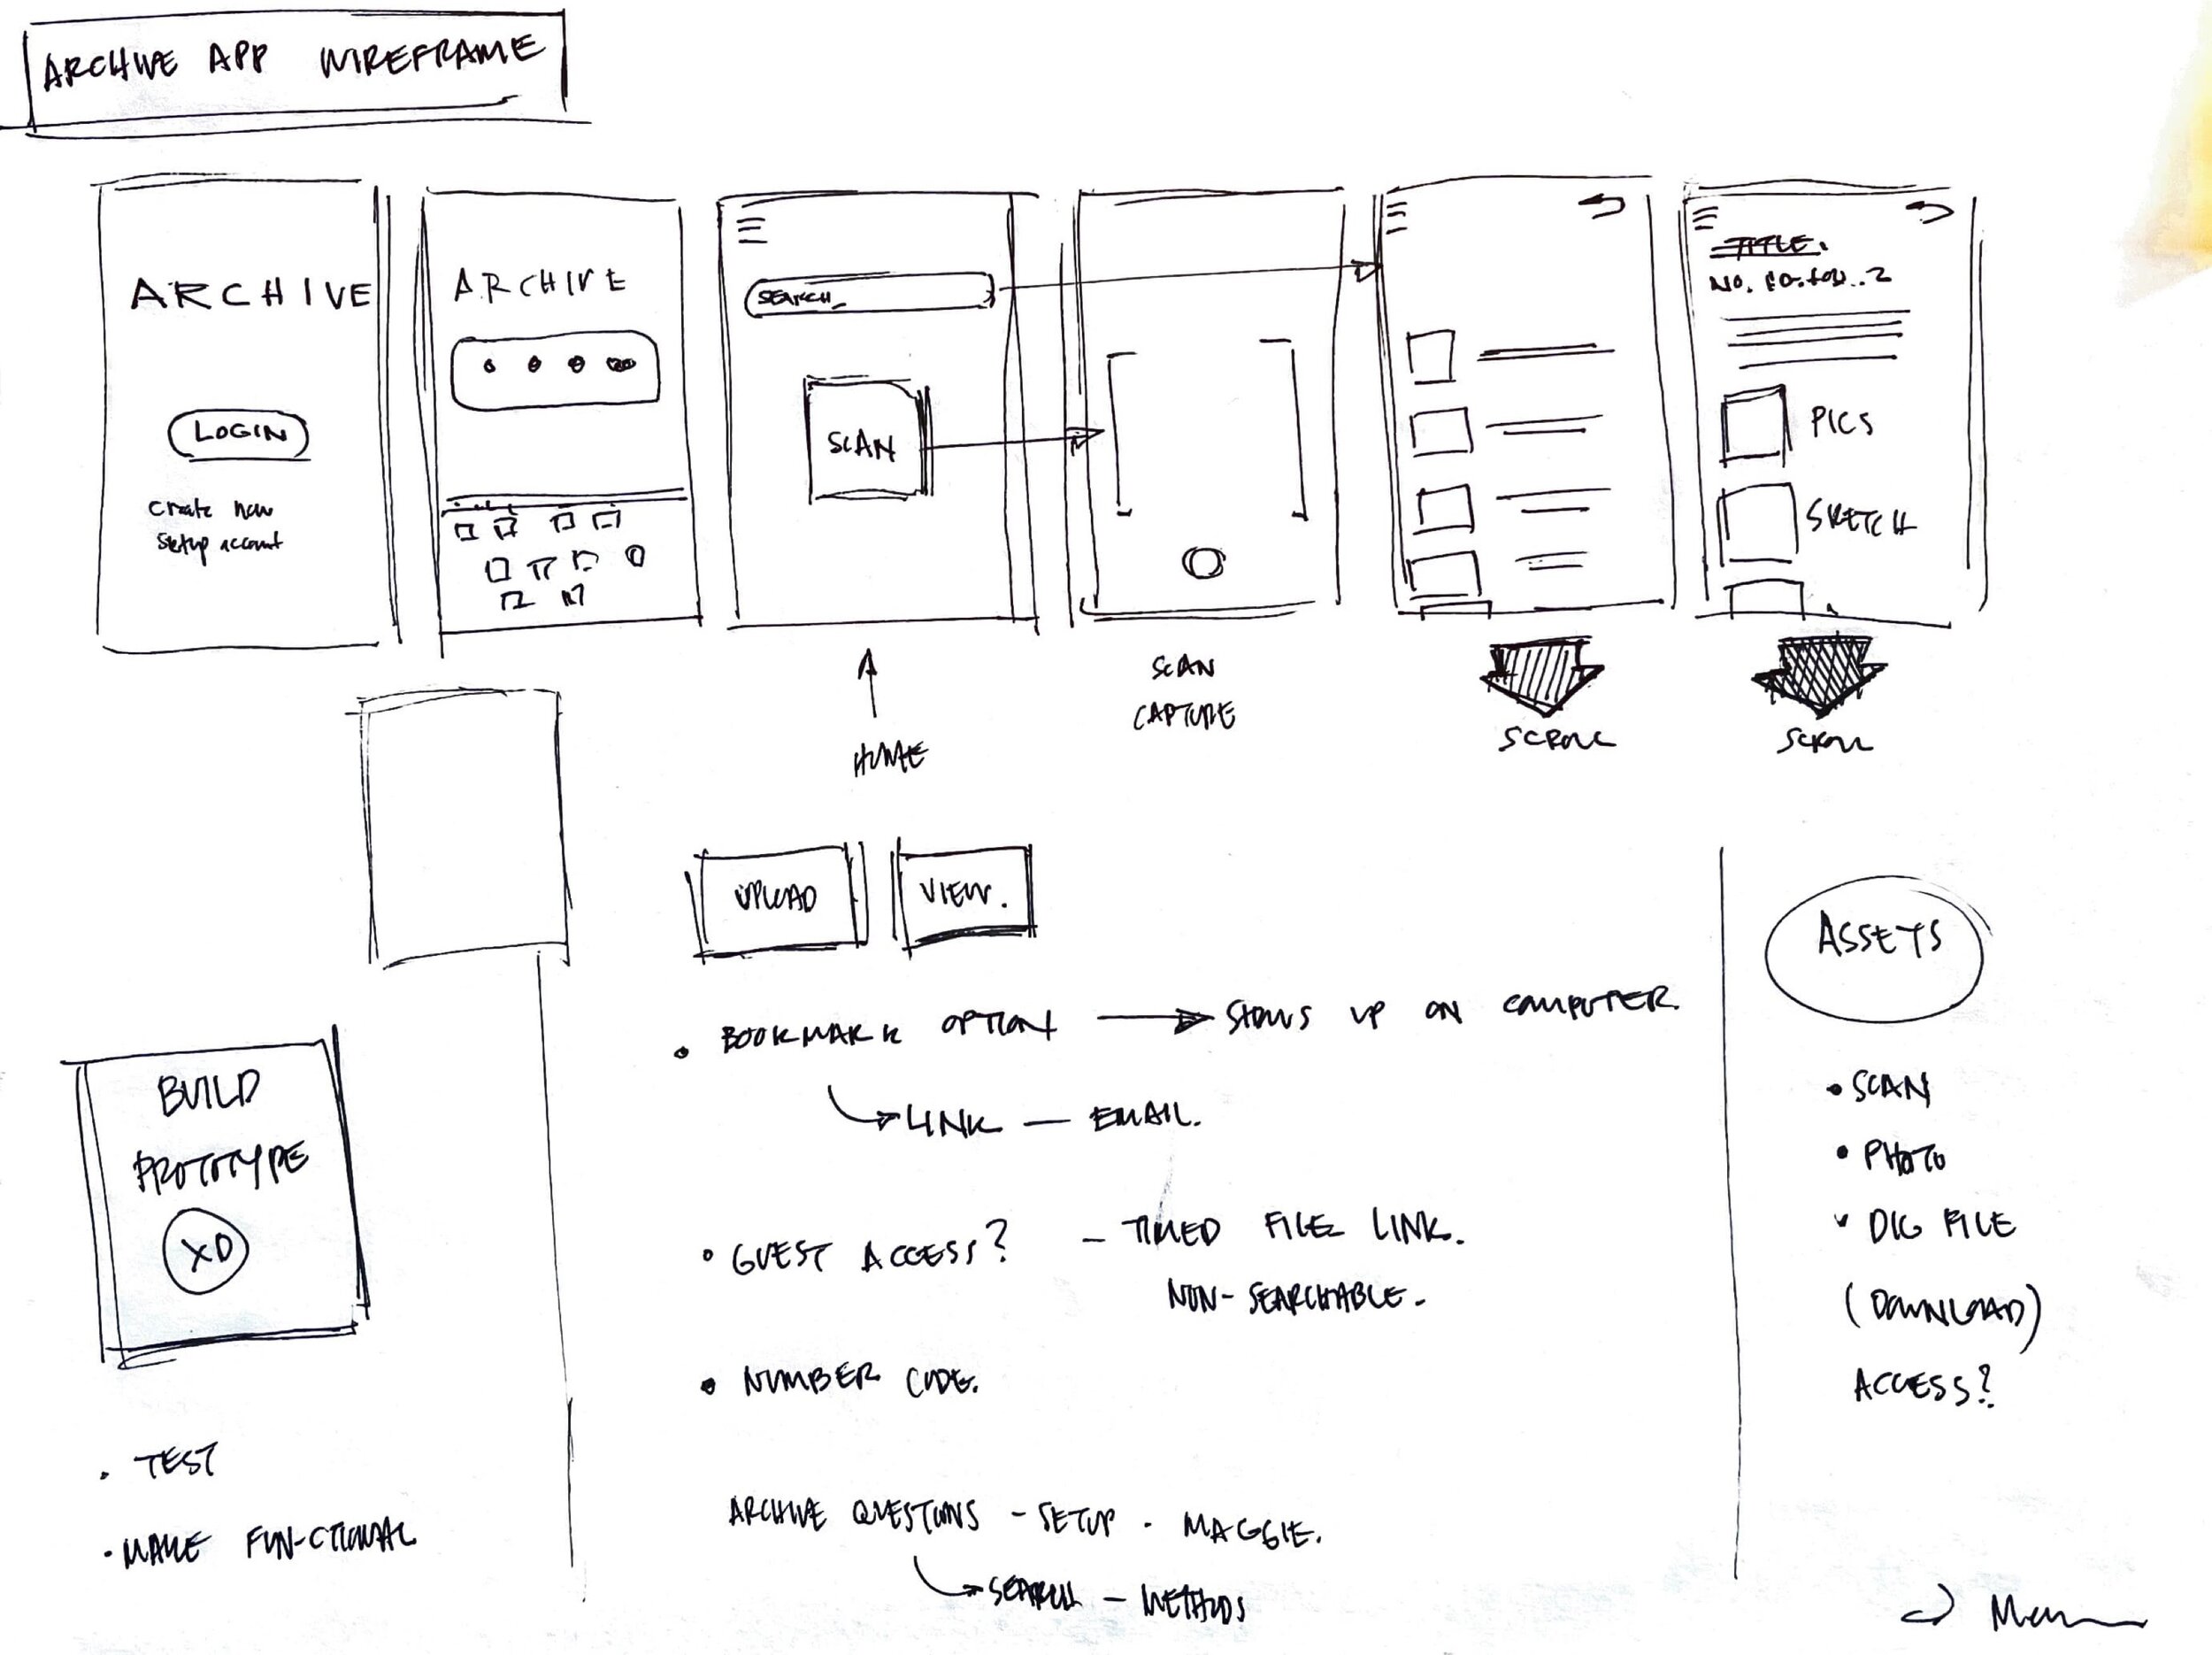 ARCHIVE APP WIREFRAME
ARCHIVE
LOGIN
Create new
setup account
ARCHIVE
SEARCH
SCAN
TITLE.
No.
PICS
SKETCH
HOME
SCAN
CAPTURE
SCROLL
SCROLL
UPLOAD
VIEW.
ASSETS
• SCAN
• PHOTO
• DIG FILE
(DOWNLOAD)
ACCESS?
BUILD
PROTOTYPE
XD
• TEST
• MAKE FUN-CTIONAL
• BOOKMARK OPTION → SHOWS UP ON COMPUTER.
→ LINK — EMAIL.
• GUEST ACCESS? – TIMED FILE LINK.
NON-SEARCHABLE.
• NUMBER CODE.
ARCHIVE QUESTIONS – SETUP - MAGGIE.
→ SEARCH – METHODS